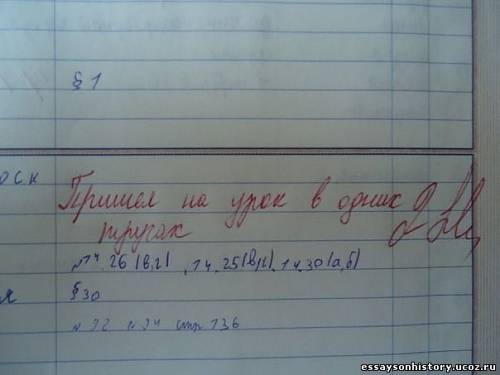 § 1
оск
Пришел на урок в одних
трусах
№14.26(в,г), 14.25(в,г), 14.30(а,б)
я
§30
№ 92 № 94 стр 136
essaysonhistory.ucoz.ru